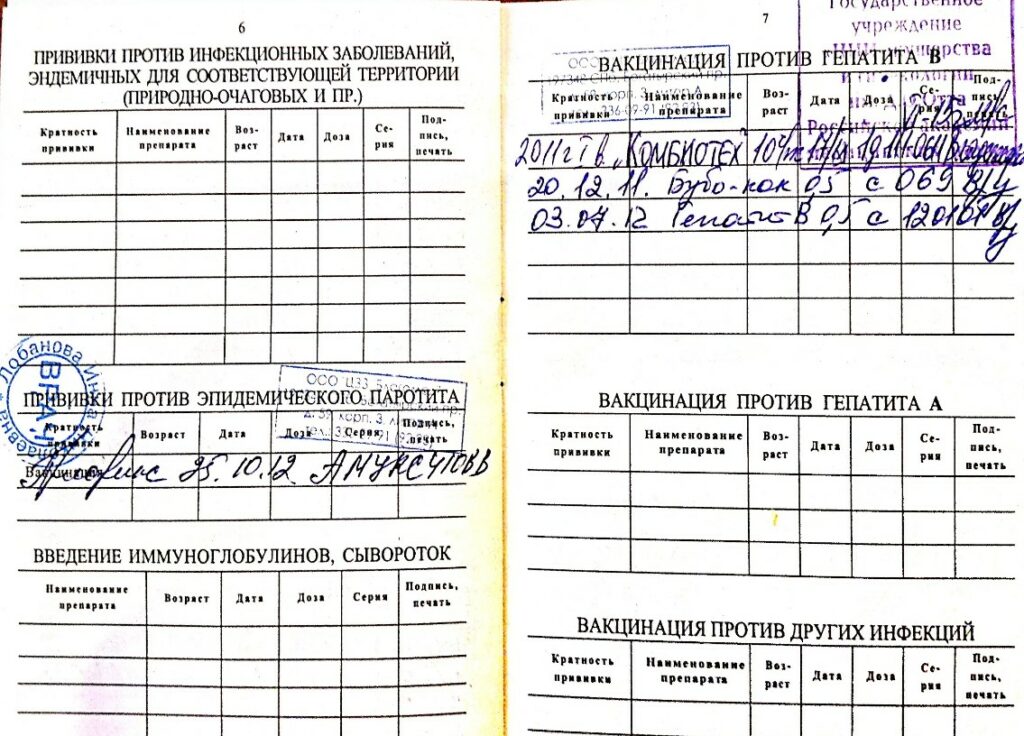 6
ПРИВИВКИ ПРОТИВ ИНФЕКЦИОННЫХ ЗАБОЛЕВАНИЙ,
ЭНДЕМИЧНЫХ ДЛЯ СООТВЕТСТВУЮЩЕЙ ТЕРРИТОРИИ
(ПРИРОДНО-ОЧАГОВЫХ И ПР.)
Кратность прививки Наименование препарата Воз-раст Дата Доза Се-рия Под-пись, печать
Лобанова Инна
ВРАЧ
ООО
ПРИВИВКИ ПРОТИВ ЭПИДЕМИЧЕСКОГО ПАРОТИТА
Кратность прививки Возраст Дата Доза Серия Подпись, печать
Вакцинация
Приорикс 25.10.12
ВВЕДЕНИЕ ИММУНОГЛОБУЛИНОВ, СЫВОРОТОК
Наименование препарата Возраст Дата Доза Серия Подпись, печать
7
Государственное
учреждение
ООО
ВАКЦИНАЦИЯ ПРОТИВ ГЕПАТИТА В
Кратность прививки Наименование препарата Воз-раст Дата Доза Се-рия Под-пись, печать
2011г "КОМБИОТЕХ"
20.12.11. Бубо-кок 0,5 с 069 В/у
03.07.12 Гепатит В 0,5 с
ВАКЦИНАЦИЯ ПРОТИВ ГЕПАТИТА А
Кратность прививки Наименование препарата Воз-раст Дата Доза Се-рия Под-пись, печать
ВАКЦИНАЦИЯ ПРОТИВ ДРУГИХ ИНФЕКЦИЙ
Кратность прививки Наименование препарата Воз-раст Дата Доза Се-рия Под-пись, печать